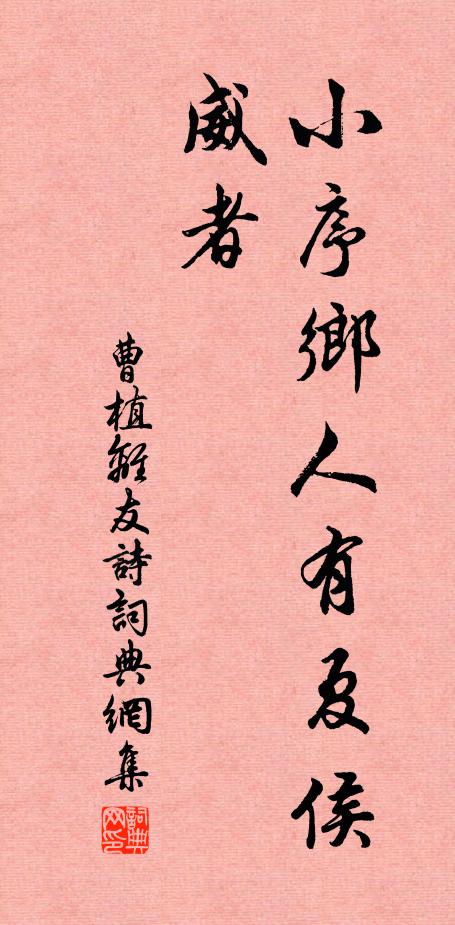 小序鄉人有夏侯
威者
曹植離友詩詞典網集
詞典网印